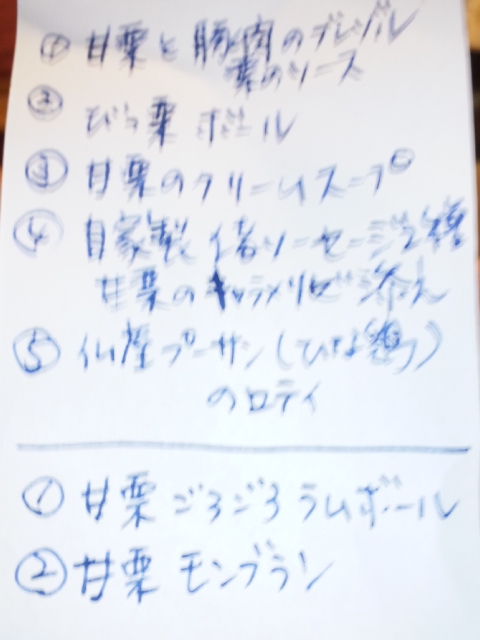 ① 甘栗と豚肉のブレゾル
栗のソース
② びっ栗 ボール
③ 甘栗のクリームスープ
④ 自家製 ソーセージ2種
甘栗のキャラメリゼ 添え
⑤ 仏産プーサン(ひな鶏)
のロティ
① 甘栗 ごろごろ ラムボール
② 甘栗 モンブラン